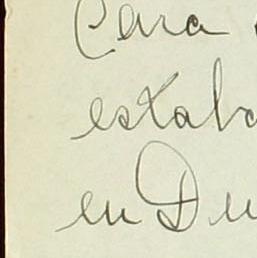 Cara
estab
en Du